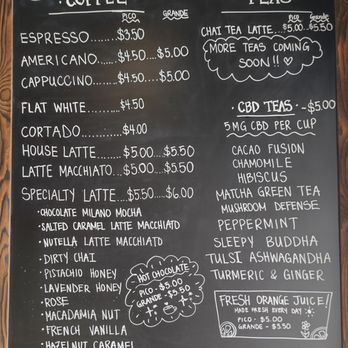 COFFEE
PICO GRANDE
ESPRESSO......$3.50
AMERICANO....$4.50....$5.00
CAPPUCCINO...$4.50....$5.00
FLAT WHITE.......$4.50
CORTADO..........$4.00
HOUSE LATTE.......$5.00....$5.50
LATTE MACCHIATO...$5.00....$5.50
SPECIALTY LATTE...$5.50...$6.00
• CHOCOLATE MILANO MOCHA
• SALTED CARAMEL LATTE MACCHIATO
• NUTELLA LATTE MACCHIATO
• DIRTY CHAI
• PISTACHIO HONEY
• LAVENDER HONEY
• ROSE
• MACADAMIA NUT
• FRENCH VANILLA
• HAZELNUT CARAMEL
HOT CHOCOLATE
PICO - $5.00
GRANDE - $5.50
TEAS
PICO GRANDE
CHAI TEA LATTE...$5.00...$5.50
MORE TEAS COMING
SOON!! ♡
• CBD TEAS • -$5.00
5 MG CBD PER CUP
CACAO FUSION
CHAMOMILE
HIBISCUS
MATCHA GREEN TEA
MUSHROOM DEFENSE
PEPPERMINT
SLEEPY BUDDHA
TULSI ASHWAGANDHA
TURMERIC & GINGER
FRESH ORANGE JUICE!
MADE FRESH EVERY DAY
PICO - $5.00
GRANDE - $5.50